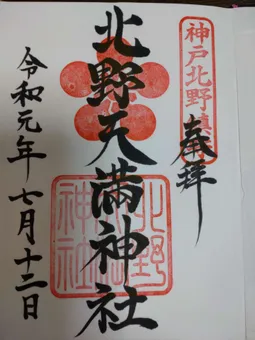 奉拝
北野天満神社
令和元年七月十二日
神戸北野鎮
北野
神社